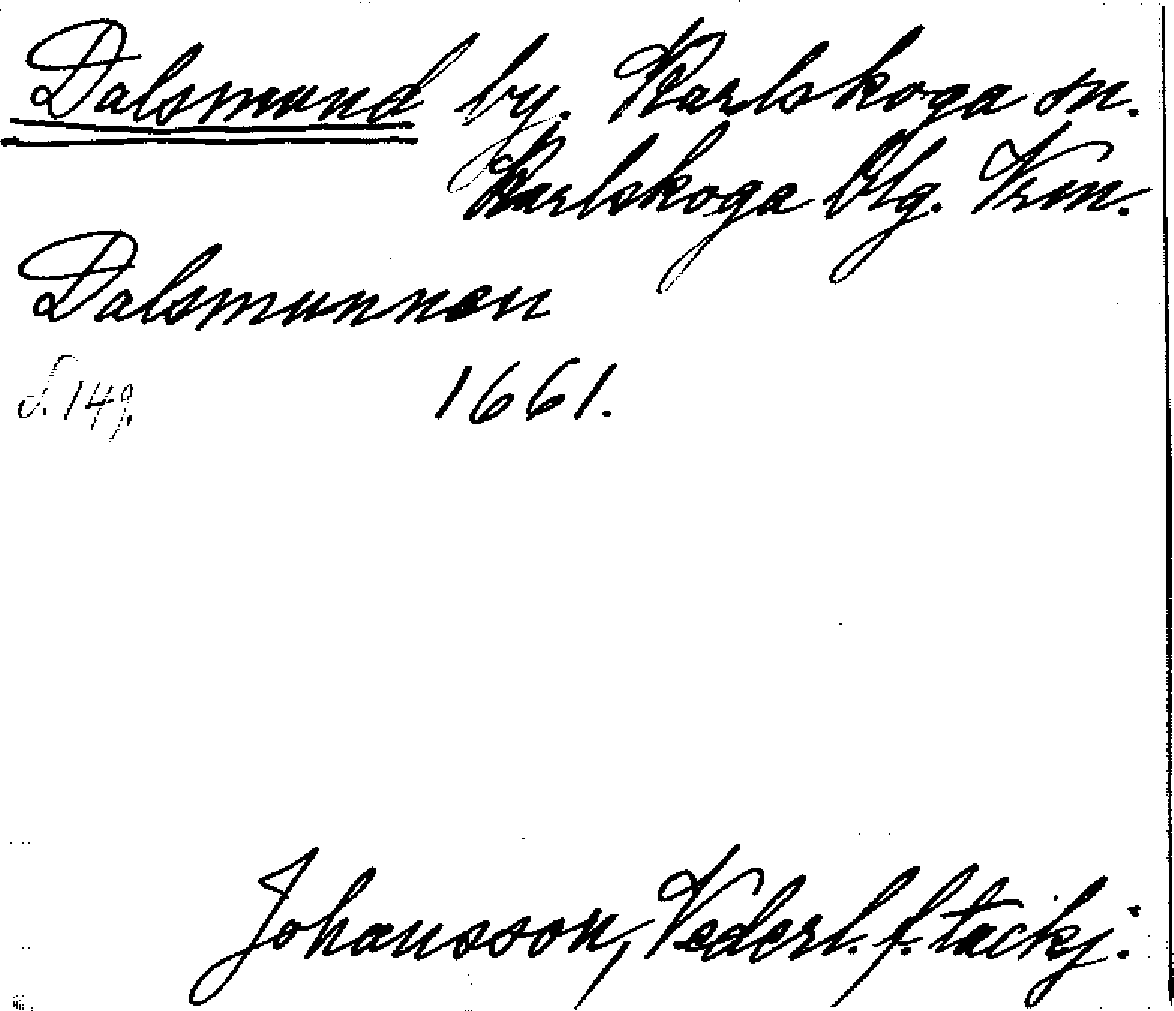 Dalsmund by. Karlskoga sn.
Karlskoga Blg. Vrm.
Dalsmunnen
S. 149.
1661.
Johansson, Vederl. f. tackj.